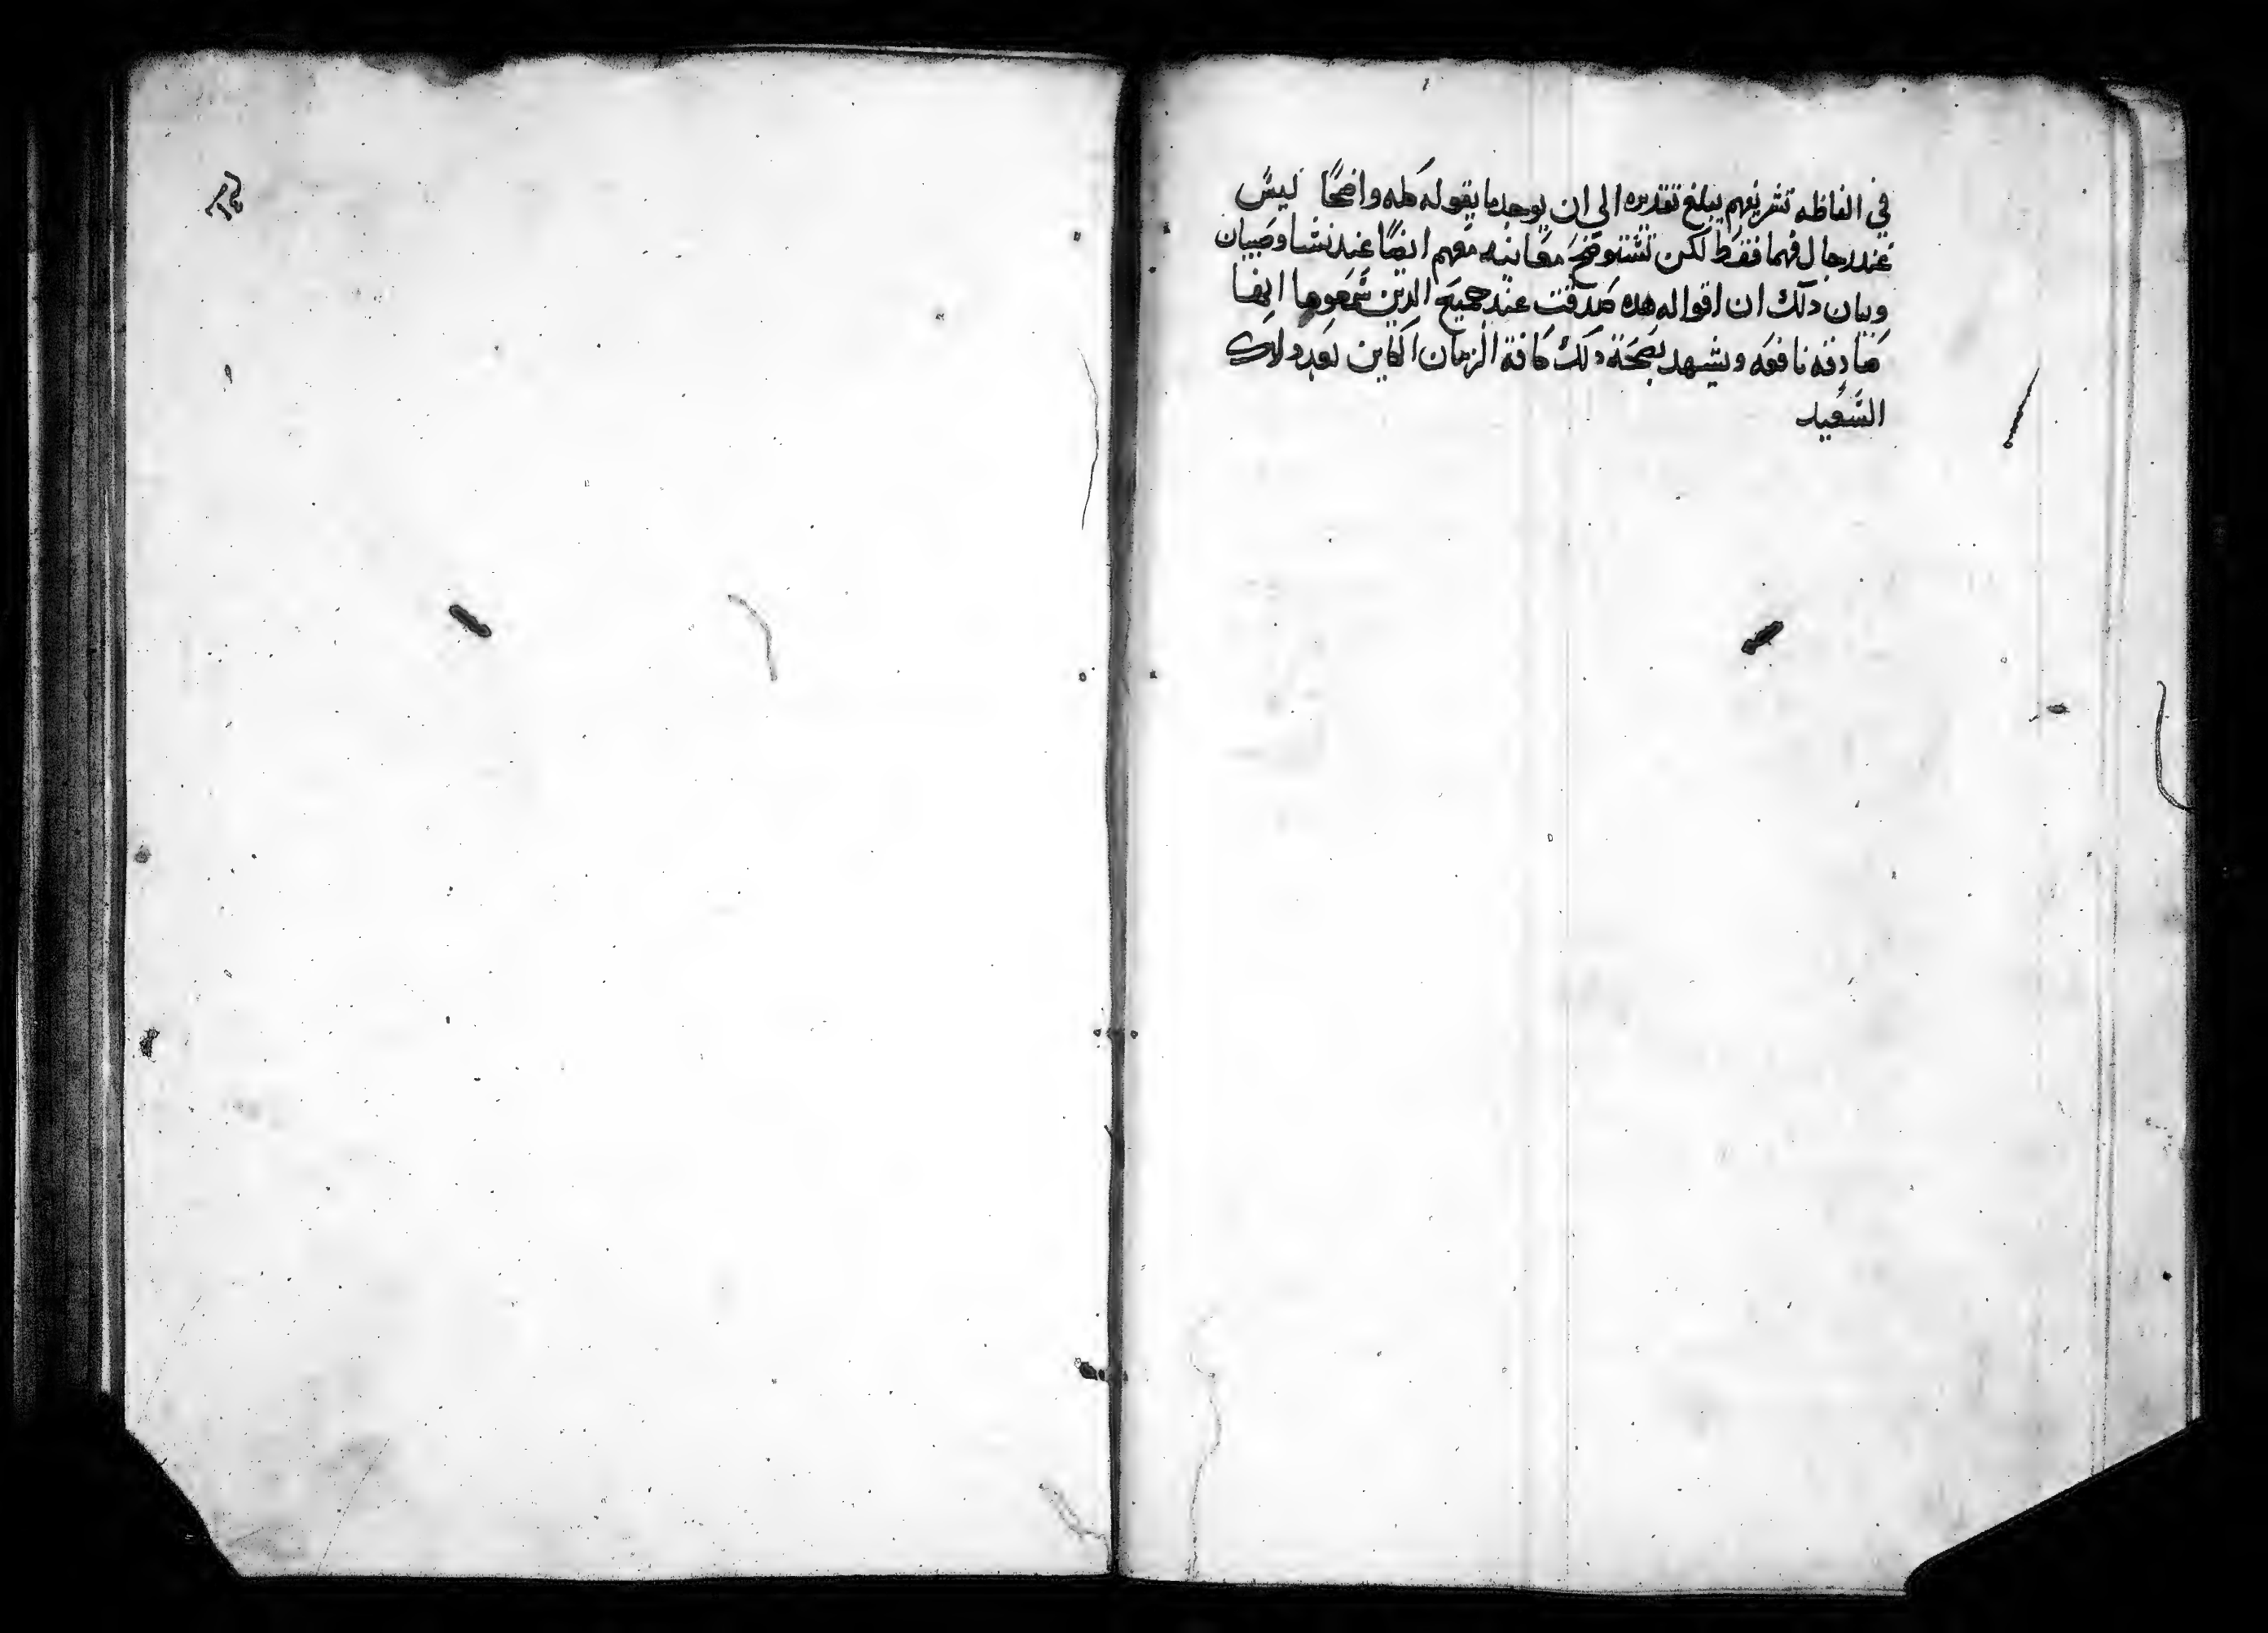 في الفاظه تشريفهم يبلغ تقديره الي ان يوجد ما يقوله كله واضحًا ليس
عند رجال فهما فقط لكن تستوضح معانيه معهم ايضًا عند نسا وصبيان
وبيان دلك ان اقواله هده صدقت عند جميع الدين سمعوها ايضا
صادقه نافعه ويشهد بصحة دلك كافة الزمان الكاين بعد ولادك
السعيد